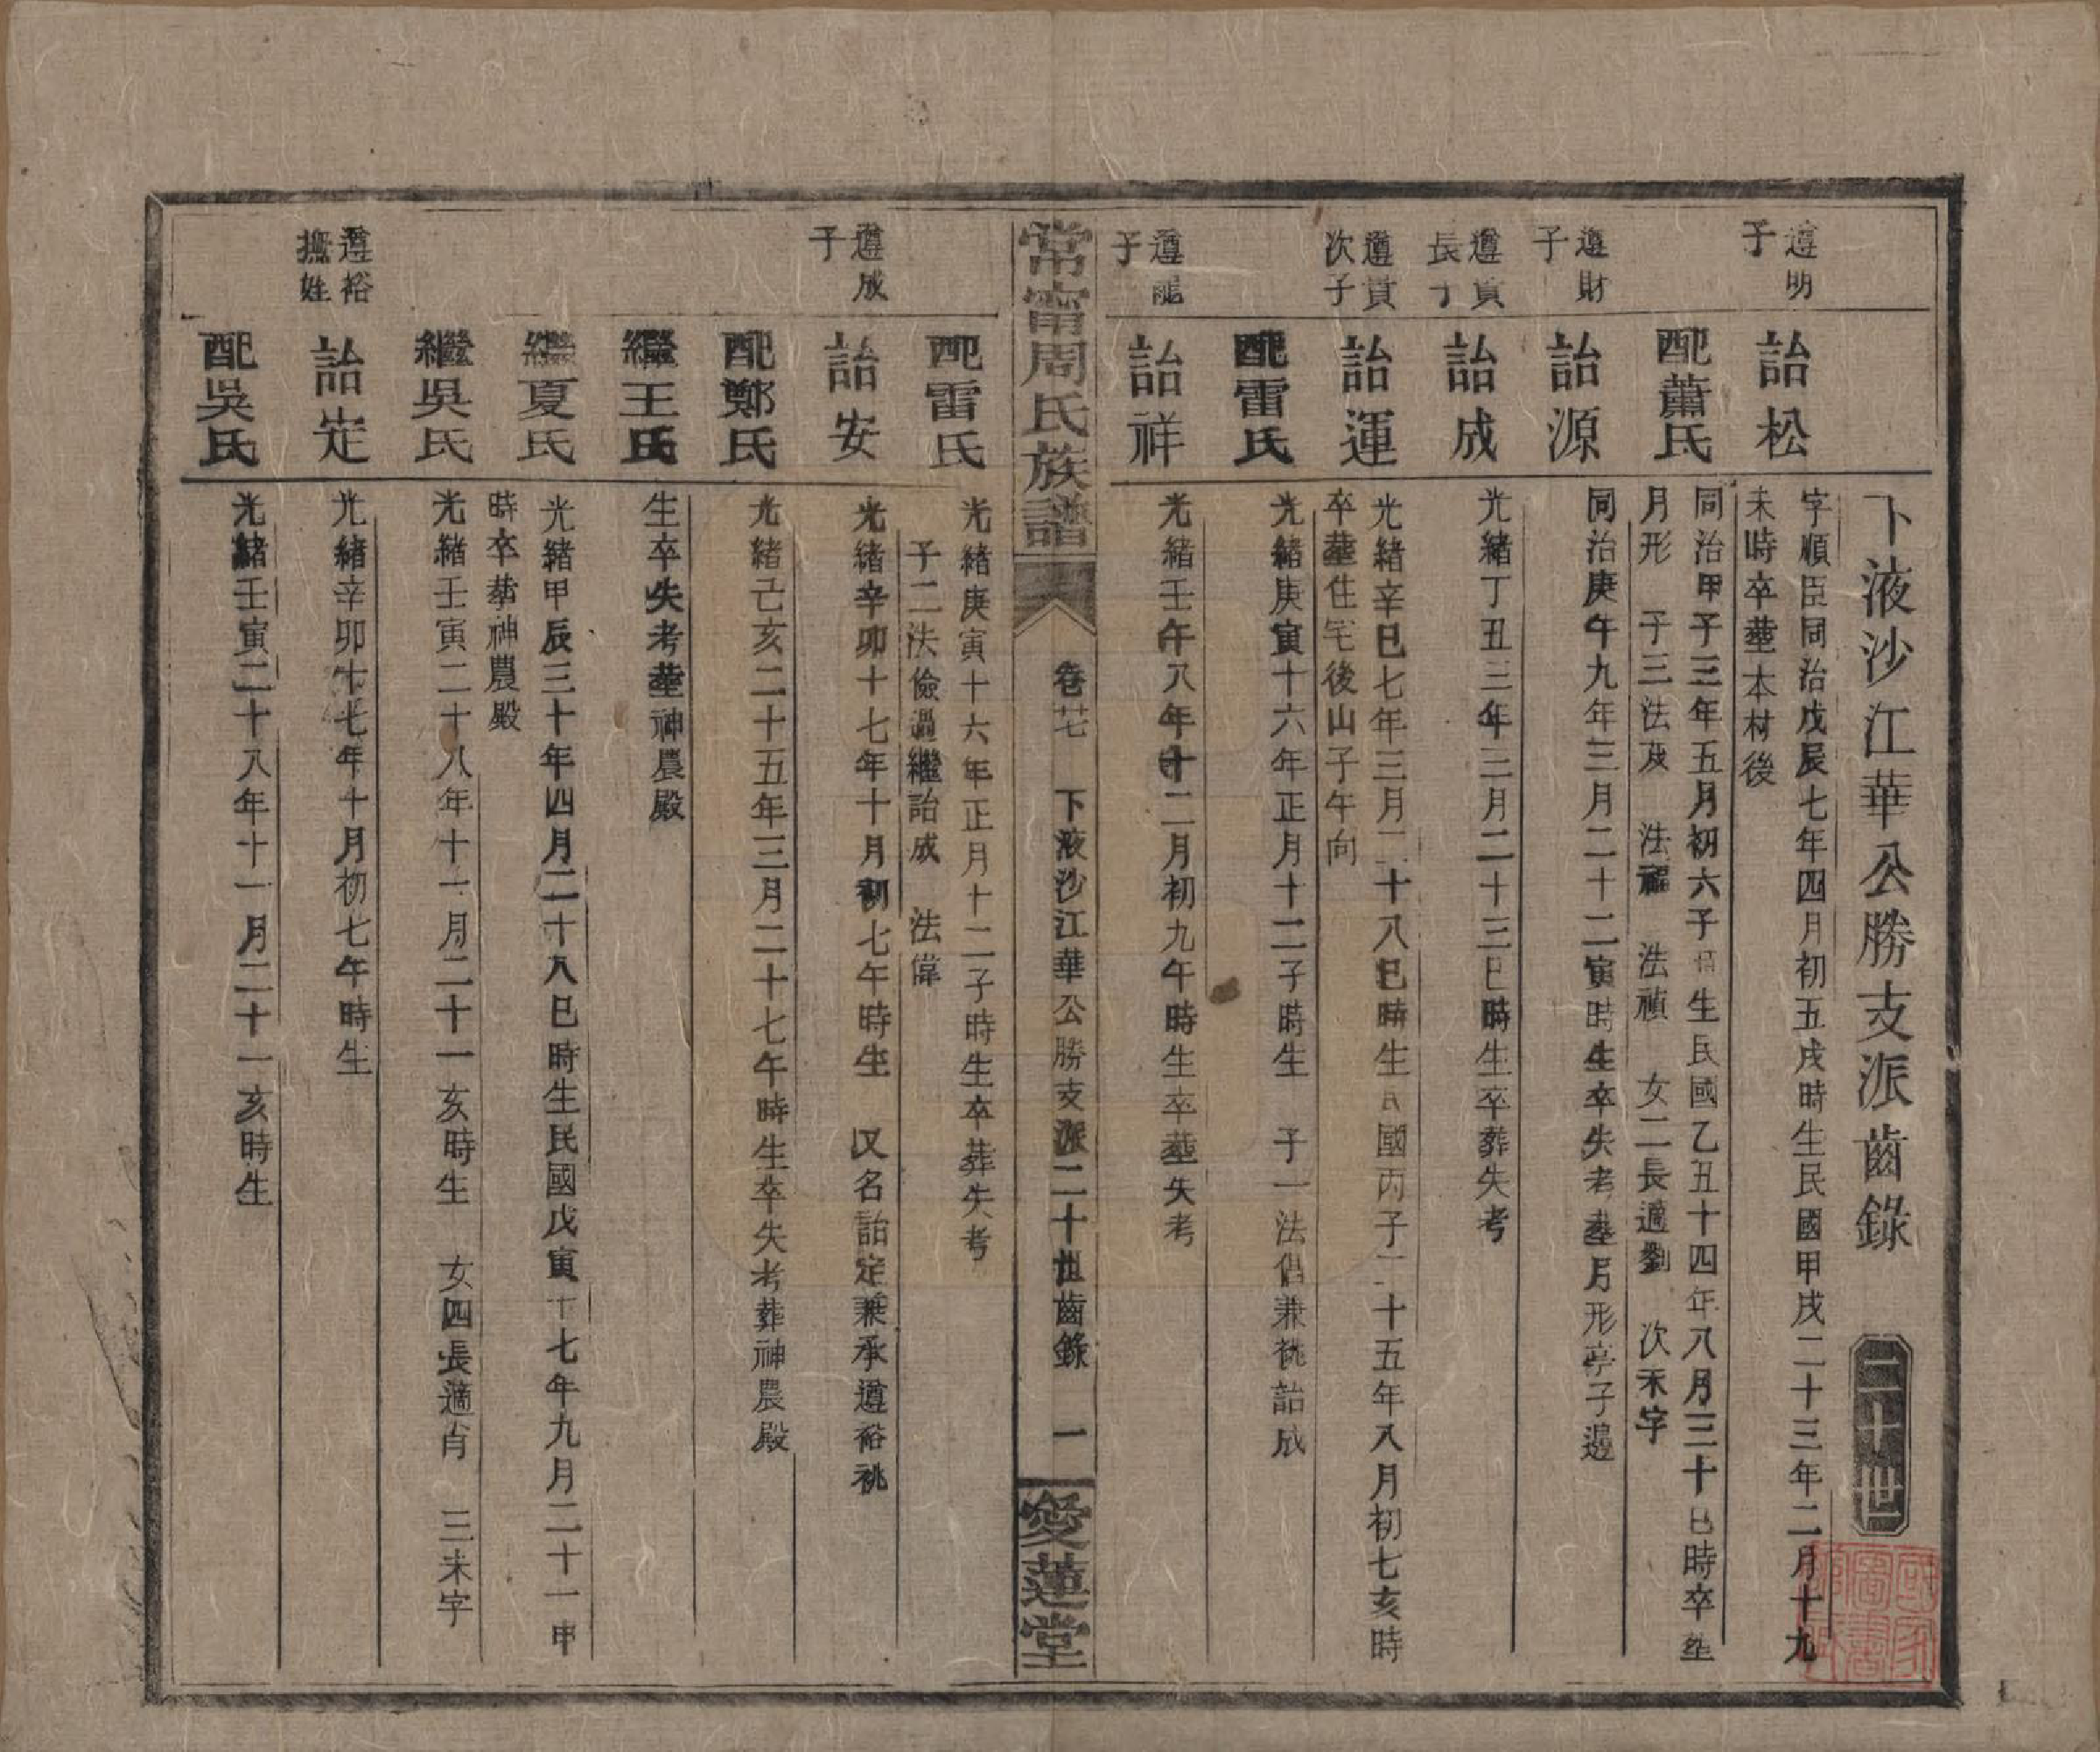 下液沙江華公勝支派齒錄 二十世
遵明子
詒松
字順臣同治戊辰七年四月初五戌時生民國甲戌二十三年二月十九
未時卒塟本村後
配蕭氏
同治甲子三年五月初六子時生民國乙丑十四年八月三十巳時卒塟
月形 子三法 法福 法禎 女二長適劉 次未字
遵財子
詒源
同治庚午九年三月二十二寅時生卒失考塟月形亭子邊
遵貴長子
詒成
光緒丁丑三年三月二十三巳時生卒葬失考
遵貴次子
詒運
光緒辛巳七年三月二十八巳時生民國丙子二十五年八月初七亥時
卒塟住宅後山子午向
配雷氏
光緒庚寅十六年正月十二子時生 子一法倡兼祧詒成
遵龍子
詒祥
光緒壬午八年十二月初九午時生卒塟失考
常甯周氏族譜 卷廿七 下液沙江華公勝支派二十世齒錄 一 愛蓮堂
配雷氏
光緒庚寅十六年正月十二子時生卒葬失考
子二法儉過繼詒成 法偉
遵成子
詒安
光緒辛卯十七年十月初七午時生 又名詒定兼承遵裕祧
配鄭氏
光緒己亥二十五年三月二十七午時生卒失考葬神農殿
繼王氏
生卒失考塟神農殿
繼夏氏
光緒甲辰三十年四月二十八巳時生民國戊寅二十七年九月二十一申
時卒塟神農殿
繼吳氏
光緒壬寅二十八年十一月二十一亥時生 女四長適肖 三未字
遵裕撫姪
詒定
光緒辛卯十七年十月初七午時生
配吳氏
光緒壬寅二十八年十一月二十一亥時生